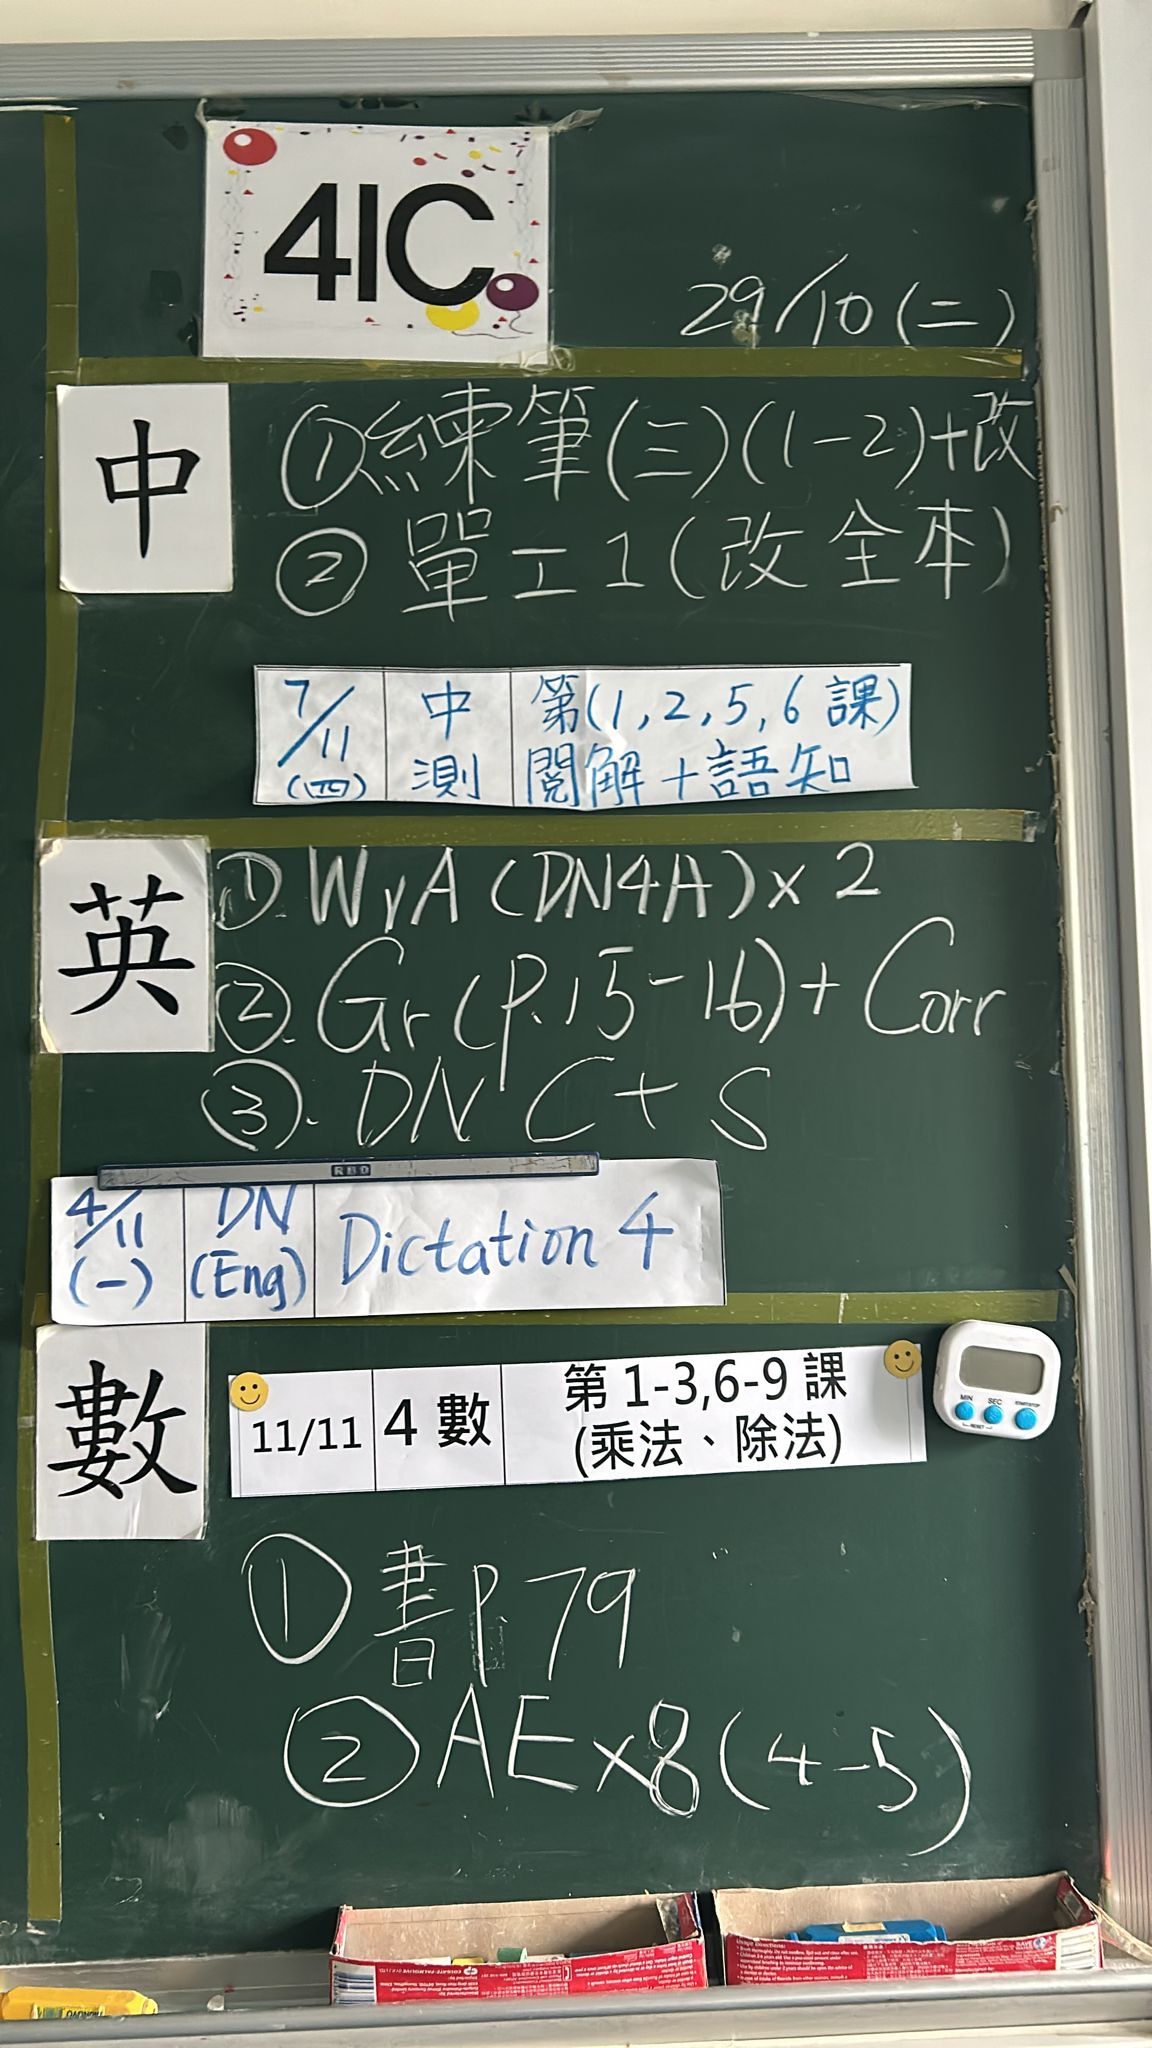 4IC
29/10(二)
中
①練筆(三)(1-2)+改
②單工1(改全本)
7/11(四) 中測 第(1,2,5,6課)
閱解+語知
英
①W,A(DN4A)x2
②.Gr(p.15-16)+Corr
③.DN C+S
RBD
4/11(一) DN(Eng) Dictation 4
數
11/11 4數 第1-3,6-9課
(乘法、除法)
MIN SEC START/STOP
RESET
①書P.79
②AEx8(4-5)